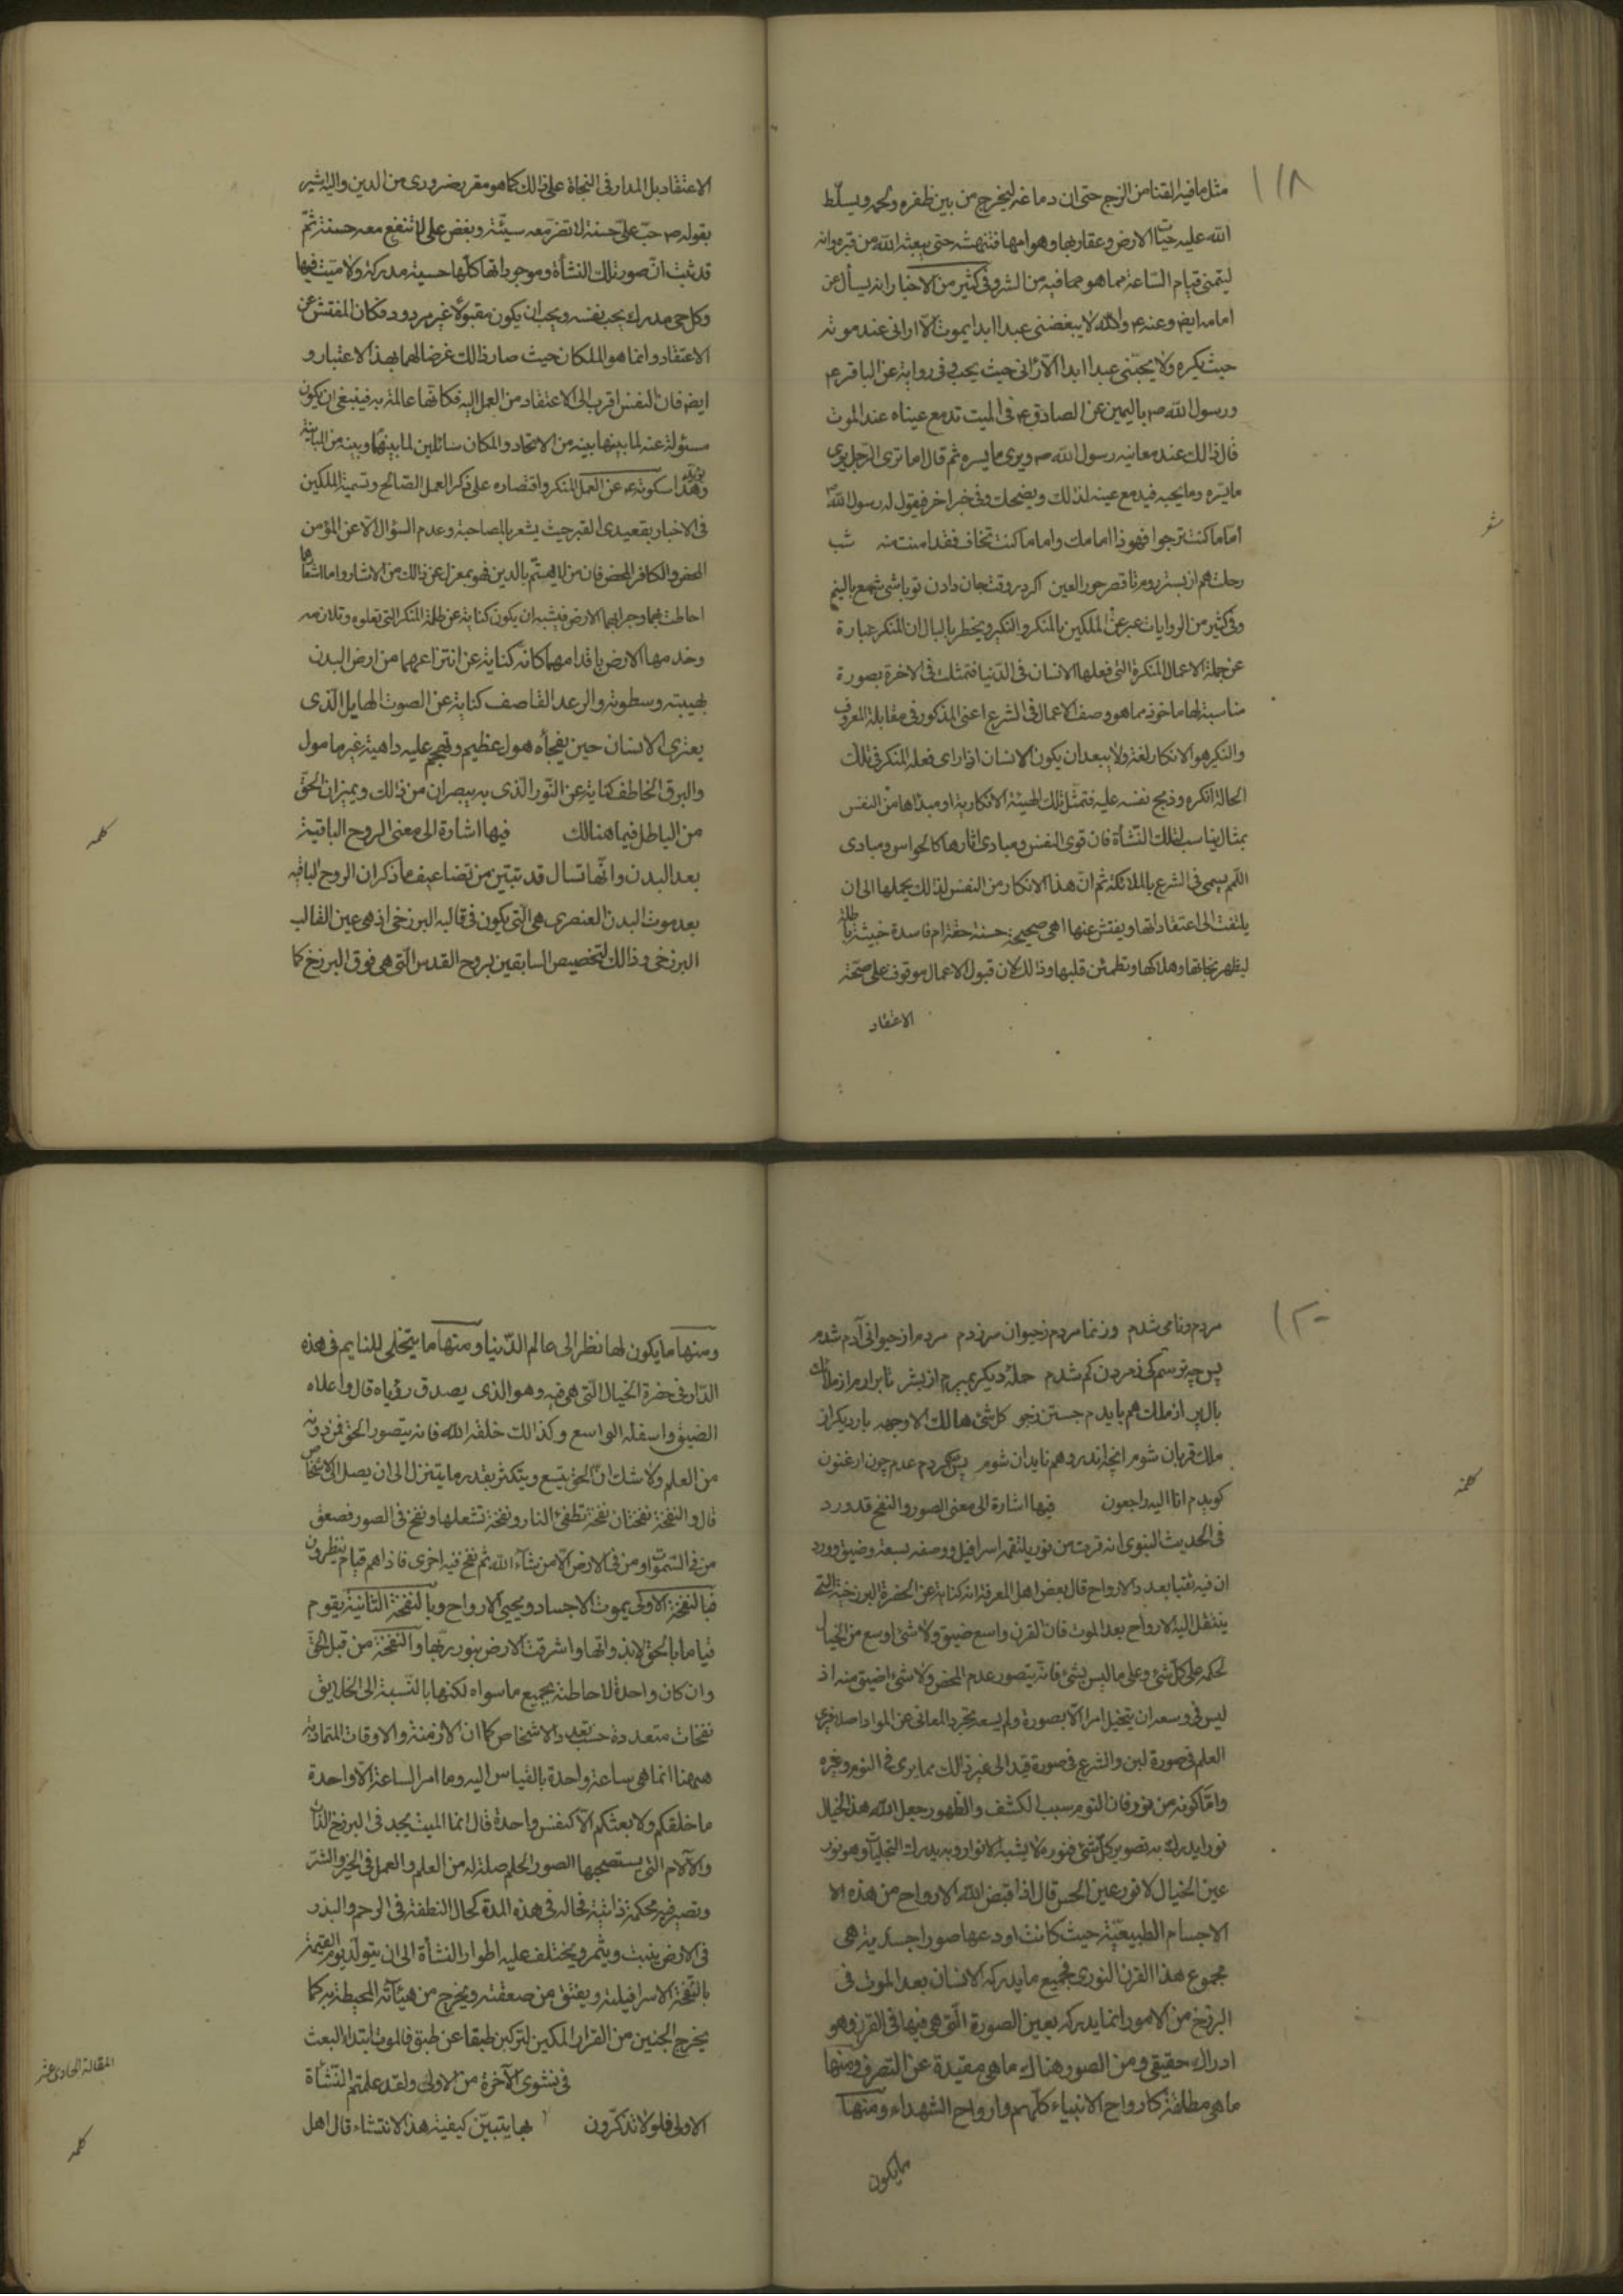 ١١٨
مثل ما فيه القنا من الزج حتى ان دماغه ليخرج من بين ظفره ولحمه ويسلّط
الله عليه حيّات الارض وعقاربها وهوامها فتنهشه حتى يبعثه الله من قبره وانه
ليتمنى قيام الساعة مما هو مما فيه من الشر وفى كثير من الاخبار انه يسأل عن
امامه ايضا وعنه ع والله لا يبغضنى عبد ابدا يموت الّا رانى عند موته
حيث يكره ولا يحبّنى عبد ابدا الّا رانى حيث يحب وفى رواية عن الباقر ع
ورسول الله ص باليمين عن الصادق ع فى الميت تدمع عيناه عند الموت
قال ذالك عند معانيه رسول الله ص ويرى ما يسره ثم قال اما ترى الرجل يرى
ما يسّره وما يحبه فيدمع عينه لذلك ويضحك وفى خبر اخر فيقول له رسول الله ص
أمّا ما كنت ترجوا فهو ذا امامك واما ما كنت تخاف فقد امنت منه شب
شعر
رحلت هم از بستر روم تا قصر حور العين اگر در وقت جان دادن تو باشى شمع بالينم
وفى كثير من الروايات عبر عن الملكين بالمنكر والنكير ويخطر بالبال ان المنكر عبارة
عن جملة الاعمال المنكرة التى فعلها الانسان فى الدّنيا فتمثلت فى الاخرة بصورة
مناسبة لها ماخوذ مما هو وصف الاعمال فى الشرع اعنى المذكور فى مقابلة المعروف
والنكير هو الانكار لغة ولا يبعد ان يكون الانسان اذا راى فعله المنكر فى تلك
الحالة انكره وذبح نفسه عليه فتمثّل تلك الهيئة الانكارية او مبداها من النفس
بمثال يناسب لتلك النّشأة فان قوى النفس ومبادى اثارها كالحواس ومبادى
اللّمم يسمى فى الشرع بالملائكة ثم انّ هذا الانكار من النفس لذالك يحملها الى ان
يلتفت الى اعتقاداتها ويفتش عنها اهى صحيحة حسنة حقة ام فاسدة خبيثة باطلة
ليظهر نجاتها وهلاكها وتطمئن قلبها وذالك لان قبول الاعمال موقوف على صحّة
الاعتقاد
الاعتقاد بل المدار فى النجاة على ذالك كما هو مقرر ضرورى من الدين واليه اشير
بقوله ص حبّ علىّ حسنة لا تضر معه سيّئة وبغض على لا تنفع معه حسنة ثمّ
قد ثبت انّ صور تلك النشأة وموجوداتها كلّها حسية مدركة ولا ميّت فيها
وكل حى مدرك يحب نفسه ويحب ان يكون مقبولا غير مردود فكان المفتش عن
الاعتقاد وانما هو الملكان حيث صار ذالك غرضا لهما بهذا الاعتبار و
ايضا فان النفس اقرب الى الاعتقاد من العمل اليه فكانّها عالمة به فينبغى ان يكون
مسئولة عنه لما بينها بينه من الاتحاد والملكان سائلين لما بينهما وبينه من المباينة
وهذا يؤيده سكوته ع عن العمل المنكر واقتصاره على ذكر العمل الصّالح وتسمية الملكين
فى الاخبار بقعيدى القبر حيث يشعر بالمصاحبة وعدم السؤال الّا عن المؤمن
المحض والكافر المحض فان من لا يهتمّ بالدين فهو بمعزل عن ذالك من الاشار واما اشعارهما
احاطت بهما وجرانهما الارض فيشبه ان يكون كناية عن ظلمة المنكر التى تعلوه وتلازمه
وخدمها الارض باقدامهما كانه كناية عن انتزاعهما من ارض البدن
بهيبته وسطوته والرعد القاصف كناية عن الصوت الهايل الّذى
يعترى الانسان حين يفجأه هول عظيم وتهجم عليه داهية غير مامول
والبرق الخاطف كناية عن النّور الّذى به يبصران من ذالك ويميزان الحقّ
من الباطل فيما هنالك فيها اشارة الى معنى الروح الباقية
كلمه
بعد البدن وانّها تسال قد تبيّن من تضاعيف ما ذكر ان الروح الباقيه
بعد موت البدن العنصرى هى الّتى يكون فى قالبه البرزخى اذ هى عين القالب
البرزخى وذالك لتخصيص السابقين بروح القدس الّتى هى فوق البرزخ كما
١٢٠
مردم و نامى شدم وز نما مردم ز حيوان سر زدم مردم از حيوانى آدم شدم
پس چه ترسم كى ز مردن كم شدم حملۀ ديگر بميرم از بشر تا برارم از ملائك
بال پر از ملك هم بايدم جستن ز جو كل شئ هالك الا وجهه بار ديگر از
ملك قربان شوم انچه اندر وهم نايد ان شوم پس عدم گردم عدم چون ارغنون
گويدم انا اليه راجعون فيها اشارة الى معنى الصور والنفخ قد ورد
كلمة
فى الحديث النبوى انه قرن من نور يلتقمه اسرافيل ووصفه بسعة وضيق وورد
ان فيه ثقبا بعدد الارواح قال بعض اهل المعرفة انه كناية عن الحضرة البرزخية التى
ينتقل اليه الارواح بعد الموت فان القرن واسع ضيق ولا شئ اوسع من الخيال
لحكمه على كلّ شئ وعلى ما ليس بشئ فانّه يتصور عدم المحض ولا شئ اضيق منه اذ
ليس فى وسعه ان يتخيل امرا الّا بصورة ولم يسعه تجرد المعانى عن المواد اصلا فيرى
العلم فى صورة لبن والشرع فى صورة قيد الى غير ذالك مما يرى فى النوم وغيره
وامّا كونه من نور فان النور سبب الكشف والظهور جعل الله هذا الخيال
نورا يدرك به تصوير كلّ شئ فنوره لا يشبه الانوار وبه يدرك التجليات وهو نور
عين الخيال لا نور عين الحس قال اذا قبض الله الارواح من هذه الا
الاجسام الطبيعيّة حيث كانت اودعها صورا جسدية هى
مجموع هذا القرن النورى فجميع ما يدركه الانسان بعد الموت فى
البرزخ من الامور انما يدركه بعين الصورة الّتى هى فيها فى القرن وهو
ادراك حقيقى ومن الصور هناك ما هى مقيدة عن التصرف ومنها
ما هى مطلقة كارواح الانبياء كلّهم وارواح الشهداء ومنها
ما يكون
ومنها ما يكون لها نظر الى عالم الدّنيا ومنها ما يتجلى للنايم فى هذه
الدّار فى حضرة الخيال الّتى هى فيه وهو الذى يصدق رؤياه قال واعلاه
الضيق واسفله الواسع وكذالك خلقه الله فانه يتصور الحق فمن دونه
من العلم ولا شك انّ الحق يتسع ويتكثر بقدر ما يتنزل الى ان يصل الى الاشخاص
قال والنفخة نفختان نفخة تطفئ النار ونفخة تشعلها ونفخ فى الصور فصعق
من فى السّموات ومن فى الارض الّا من شاء الله ثم نفخ فيه اخرى فاذا هم قيام ينظرون
فبالنفخة الاولى يموت الاجساد ويحيى الارواح وبالنفخة الثانية يقوم
قياما بالحق لا بذواتها واشرقت الارض بنور ربّها والنفخة من قبل الحقّ
وان كان واحدة لاحاطته بجميع ما سواه لكنها بالنّسبة الى الخلايق
نفخات متعددة حسب تعدد الاشخاص كما ان الازمنة والاوقات المتمادية
ههنا انما هى ساعة واحدة بالقياس اليه وما امر الساعة الّا واحدة
ما خلقكم ولا بعثكم الّا كنفس واحدة قال انما الميت يجد فى البرزخ اللذّات
والآلام التى يستصحبها الصور الحاصلة له من العلم والعمل فى الخير والشرّ
وتصير فيه محكمة ذاتية فحاله فى هذه المدة كحال النطفة فى الرحم والبذر
فى الارض ينبت ويثمر ويختلف عليه اطوار النشأة الى ان يتولد يوم القيمة
بالنّفخة الاسرافيلية ويفتق من صعقته ويخرج من هيئآته المحيطة به كما
يخرج الجنين من القرار المكين لتركبن طبقا عن طبق فالموت ابتداء البعث
المقالة الحادى عشر
فى نشوى الآخرة من الاولى ولقد علمتم النّشأة
الاولى فلولا تذكّرون بها يتبيّن كيفية هذا الانتشاء قال اهل
كلمه